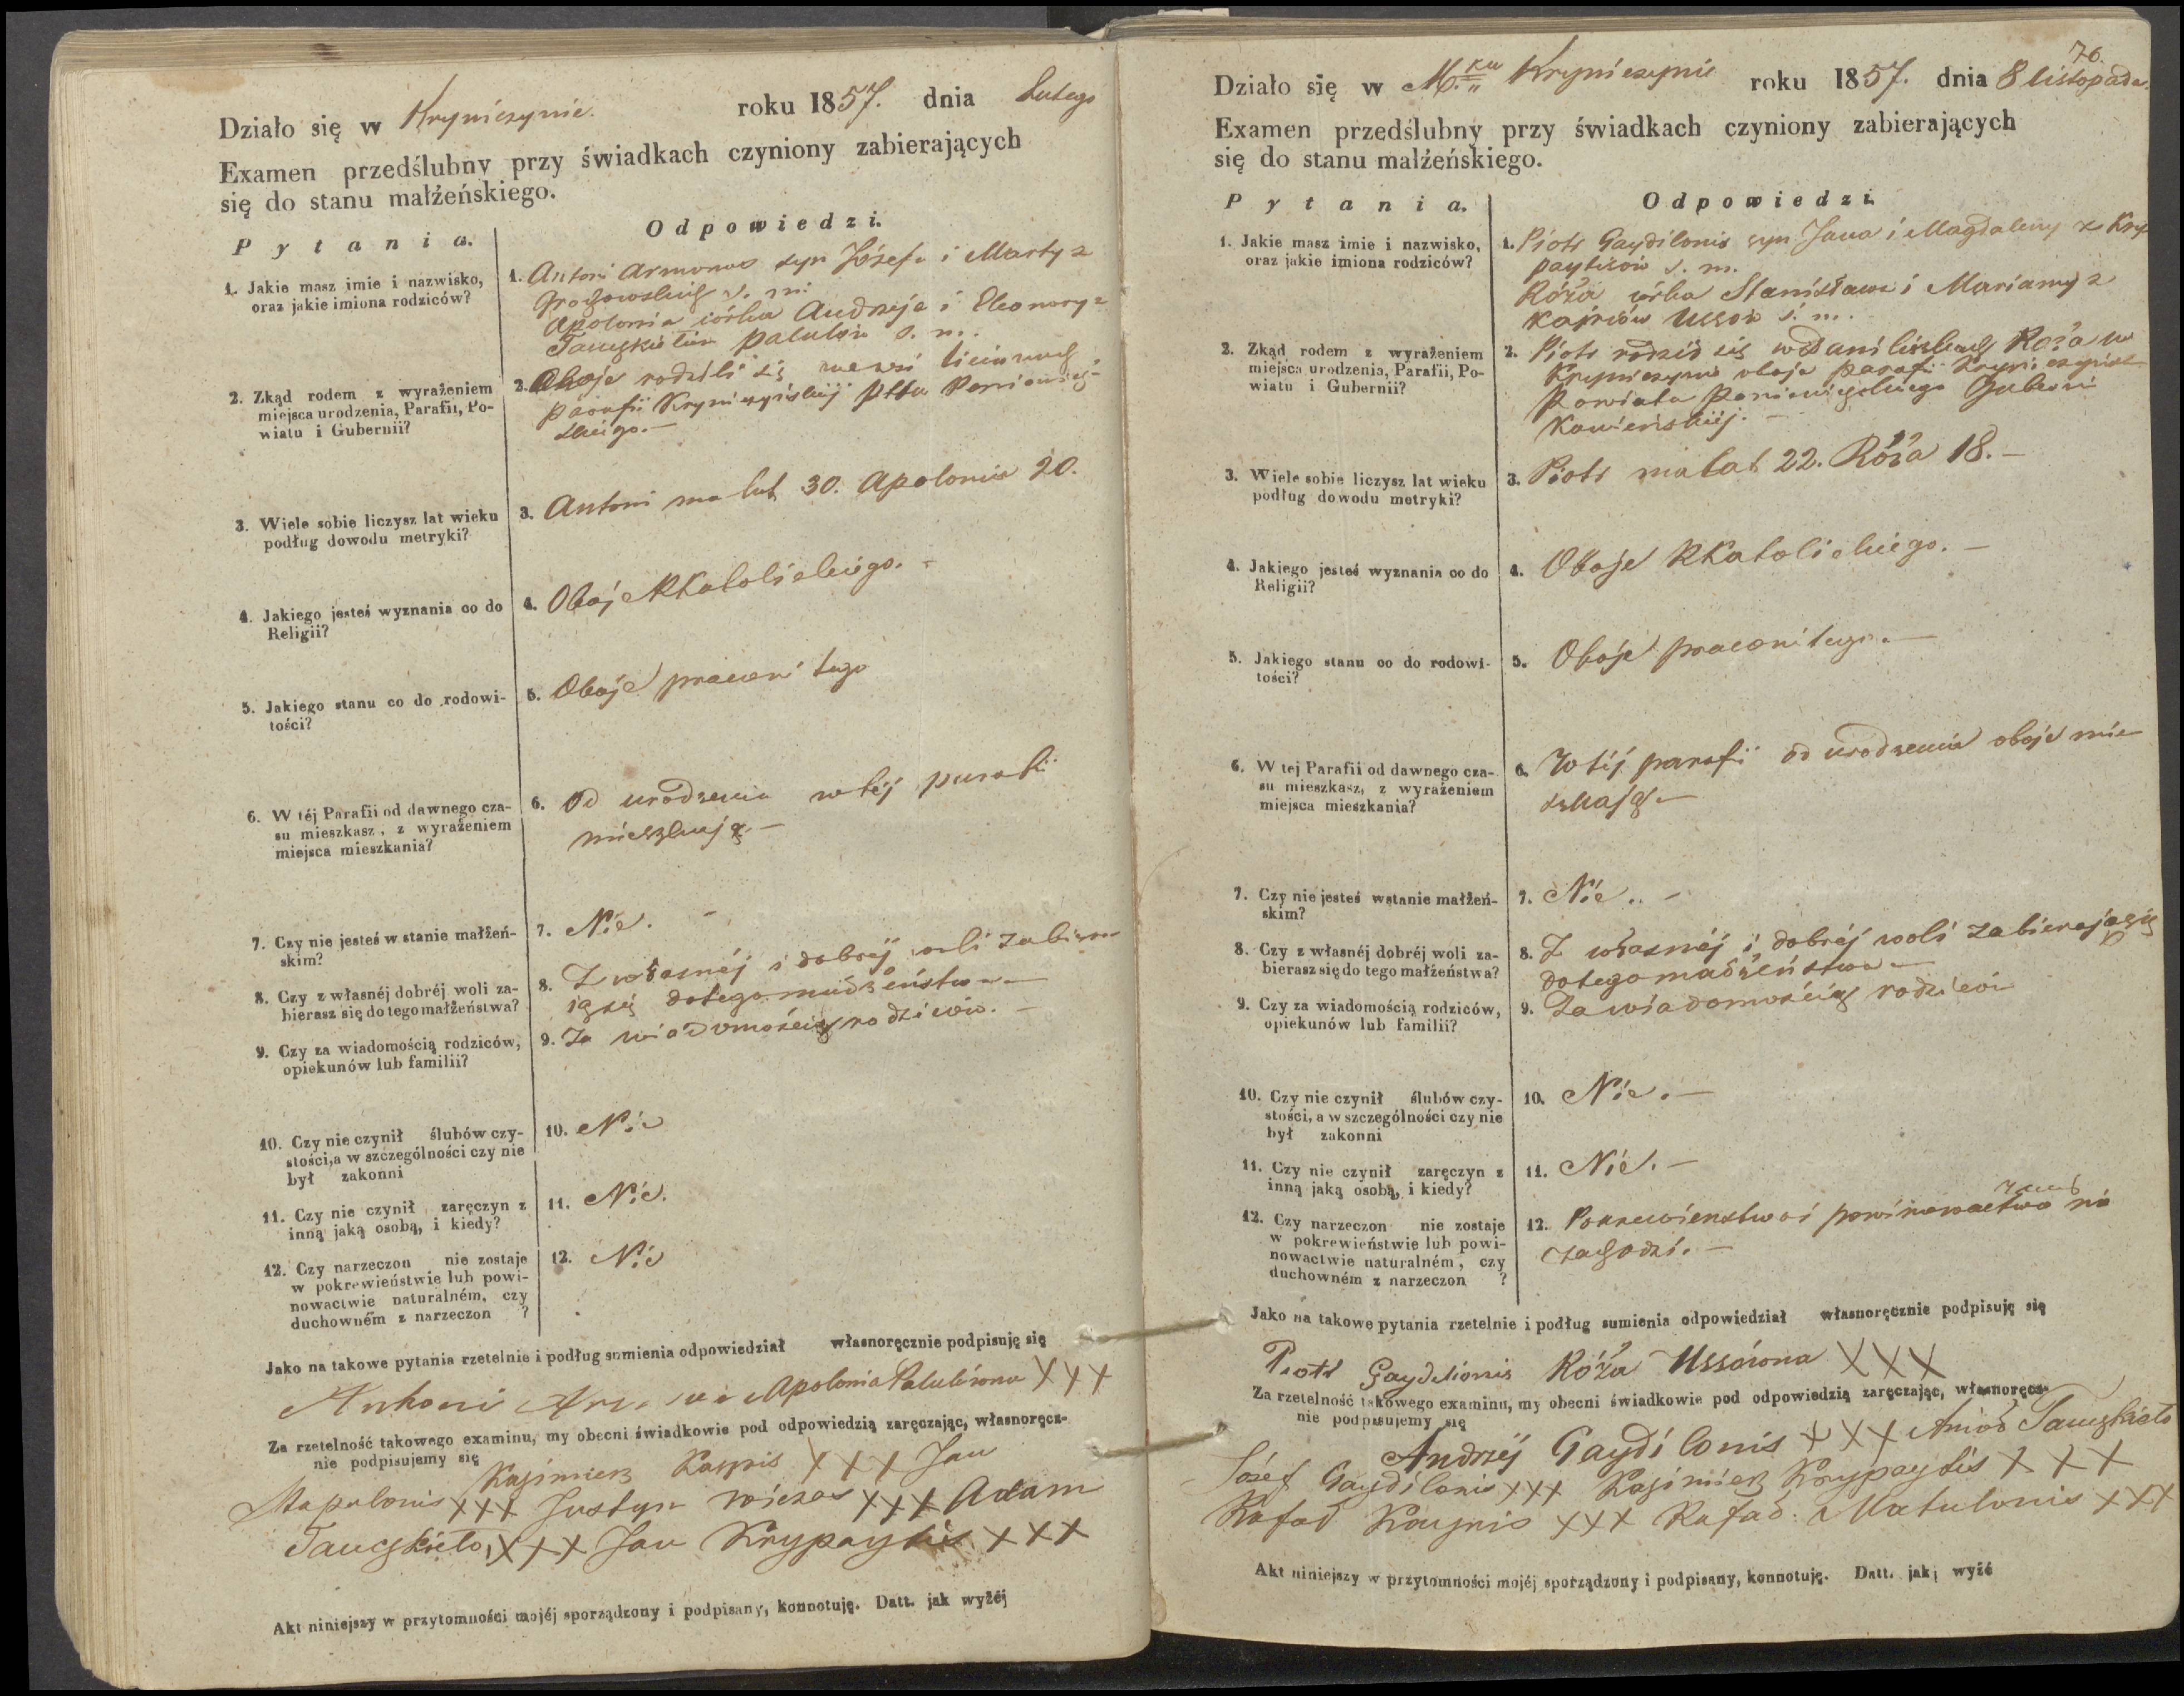 Działo się w Kryniczynie. roku 1857. dnia Lutego
Examen przedślubny przy świadkach czyniony zabierających
się do stanu małżeńskiego.
Pytania. Odpowiedzi.
1. Jakie masz imie i nazwisko,
oraz jakie imiona rodziców?
1. Antoni Armonas syn Józefa i Marty z
Grochowskich s. m.
Apolonia córka Andrzeja i Eleonory z
Palulów s. m.
2. Zkąd rodem z wyrażeniem
miejsca urodzenia, Parafii, Po-
wiatu i Gubernii?
2. Oboje rodzili się we wsi
parafii Krynicyńskiéj Pttu Poniewież-
skiego.—
3. Wiele sobie liczysz lat wieku
podług dowodu metryki?
3. Antoni ma lat 30. Apolonia 20.
4. Jakiego jesteś wyznania co do
Religii?
4. Oboje RKatolickiego. -
5. Jakiego stanu co do rodowi-
tości?
5. Oboje
6. W téj Parafii od dawnego cza-
su mieszkasz, z wyrażeniem
miejsca mieszkania?
6. Od urodzenia w téj parafii
mieszkają.—
7. Czy nie jesteś w stanie małżeń-
skim?
7. Nie. -
8. Czy z własnéj dobréj woli za-
bierasz się do tego małżeństwa?
8. Z własnéj i dobréj woli zabiera-
ją się do tego małżeństwa—
9. Czy za wiadomością rodziców,
opiekunów lub familii?
9. Za wiadomością rodziców. -
10. Czy nie czynił ślubów czy-
stości, a w szczególności czy nie
był zakonni
10. Nie
11. Czy nie czynił zaręczyn z
inną jaką osobą, i kiedy?
11. Nie.
12. Czy narzeczon nie zostaje
w pokrewieństwie lub powi-
nowactwie naturalném, czy
duchowném z narzeczon ?
12. Nie
Jako na takowe pytania rzetelnie i podług sumienia odpowiedział własnoręcznie podpisuję się
Antoni Apolonia Palulówna XXX
Za rzetelność takowego examinu, my obecni świadkowie pod odpowiedzią zaręczając, własnoręcz-
nie podpisujemy się
Kazimierz Kaynis XXX Jan
Matulonis XXX Justyn XXX Adam
XXX Jan Krypaytis XXX
Akt niniejszy w przytomności mojéj sporządzony i podpisany, konnotuję. Datt. jak wyżéj
76.
Działo się w M.ku Kryniczynie roku 1857. dnia 8 listopada.
Examen przedślubny przy świadkach czyniony zabierających
się do stanu małżeńskiego.
Pytania. Odpowiedzi.
1. Jakie masz imie i nazwisko,
oraz jakie imiona rodziców?
1. Piotr Gaydilonis syn Jana i Magdaleny z Kry-
paytisów s. m.
Róża córka Stanisława i Marianny z
Kaynisów Ussów s. m.
2. Zkąd rodem z wyrażeniem
miejsca urodzenia, Parafii, Po-
wiatu i Gubernii?
2. Piotr rodził się w Daniliszkach Róża w
Krynicynie oboje parafii
Powiatu Poniewiezskiego Gubernii
Kowieńskiéj. -
3. Wiele sobie liczysz lat wieku
podług dowodu metryki?
3. Piotr ma lat 22. Róża 18.-
4. Jakiego jesteś wyznania co do
Religii?
4. Oboje RKatolickiego. -
5. Jakiego stanu co do rodowi-
tości?
5. Oboje
6. W tej Parafii od dawnego cza-
su mieszkasz, z wyrażeniem
miejsca mieszkania?
6. W téj parafii od urodzenia oboje mie-
szkają.—
7. Czy nie jesteś wstanie małżeń-
skim?
7. Nie.. -
8. Czy z własnéj dobréj woli za-
bierasz się do tego małżeństwa?
8. Z własnéj i dobréj woli zabierają się
do tego małżeństwa—
9. Czy za wiadomością rodziców,
opiekunów lub familii?
9. Za wiadomością rodziców
10. Czy nie czynił ślubów czy-
stości, a w szczególności czy nie
był zakonni
10. Nie.—
11. Czy nie czynił zaręczyn z
inną jaką osobą, i kiedy?
11. Nie.—
12. Czy narzeczon nie zostaje
w pokrewieństwie lub powi-
nowactwie naturalném, czy
duchowném z narzeczon ?
12. Pokrewienstwo i powinowactwo nie
zachodzi.—
Jako na takowe pytania rzetelnie i podług sumienia odpowiedział własnoręcznie podpisuję się
Piotr Gaydilonis Róża Ussówna XXX
Za rzetelność takowego examinu, my obecni świadkowie pod odpowiedzią zaręczając, własnoręcz-
nie podpisujemy się
Andrzéj Gaydilonis XXX
Józef Gaydilonis XXX Kazimierz Krypaytis XXX
Rafał Kaynis XXX Rafał Matulonis XXX
Akt niniejszy w przytomności mojéj sporządzony i podpisany, konnotuję. Datt. jak wyżé